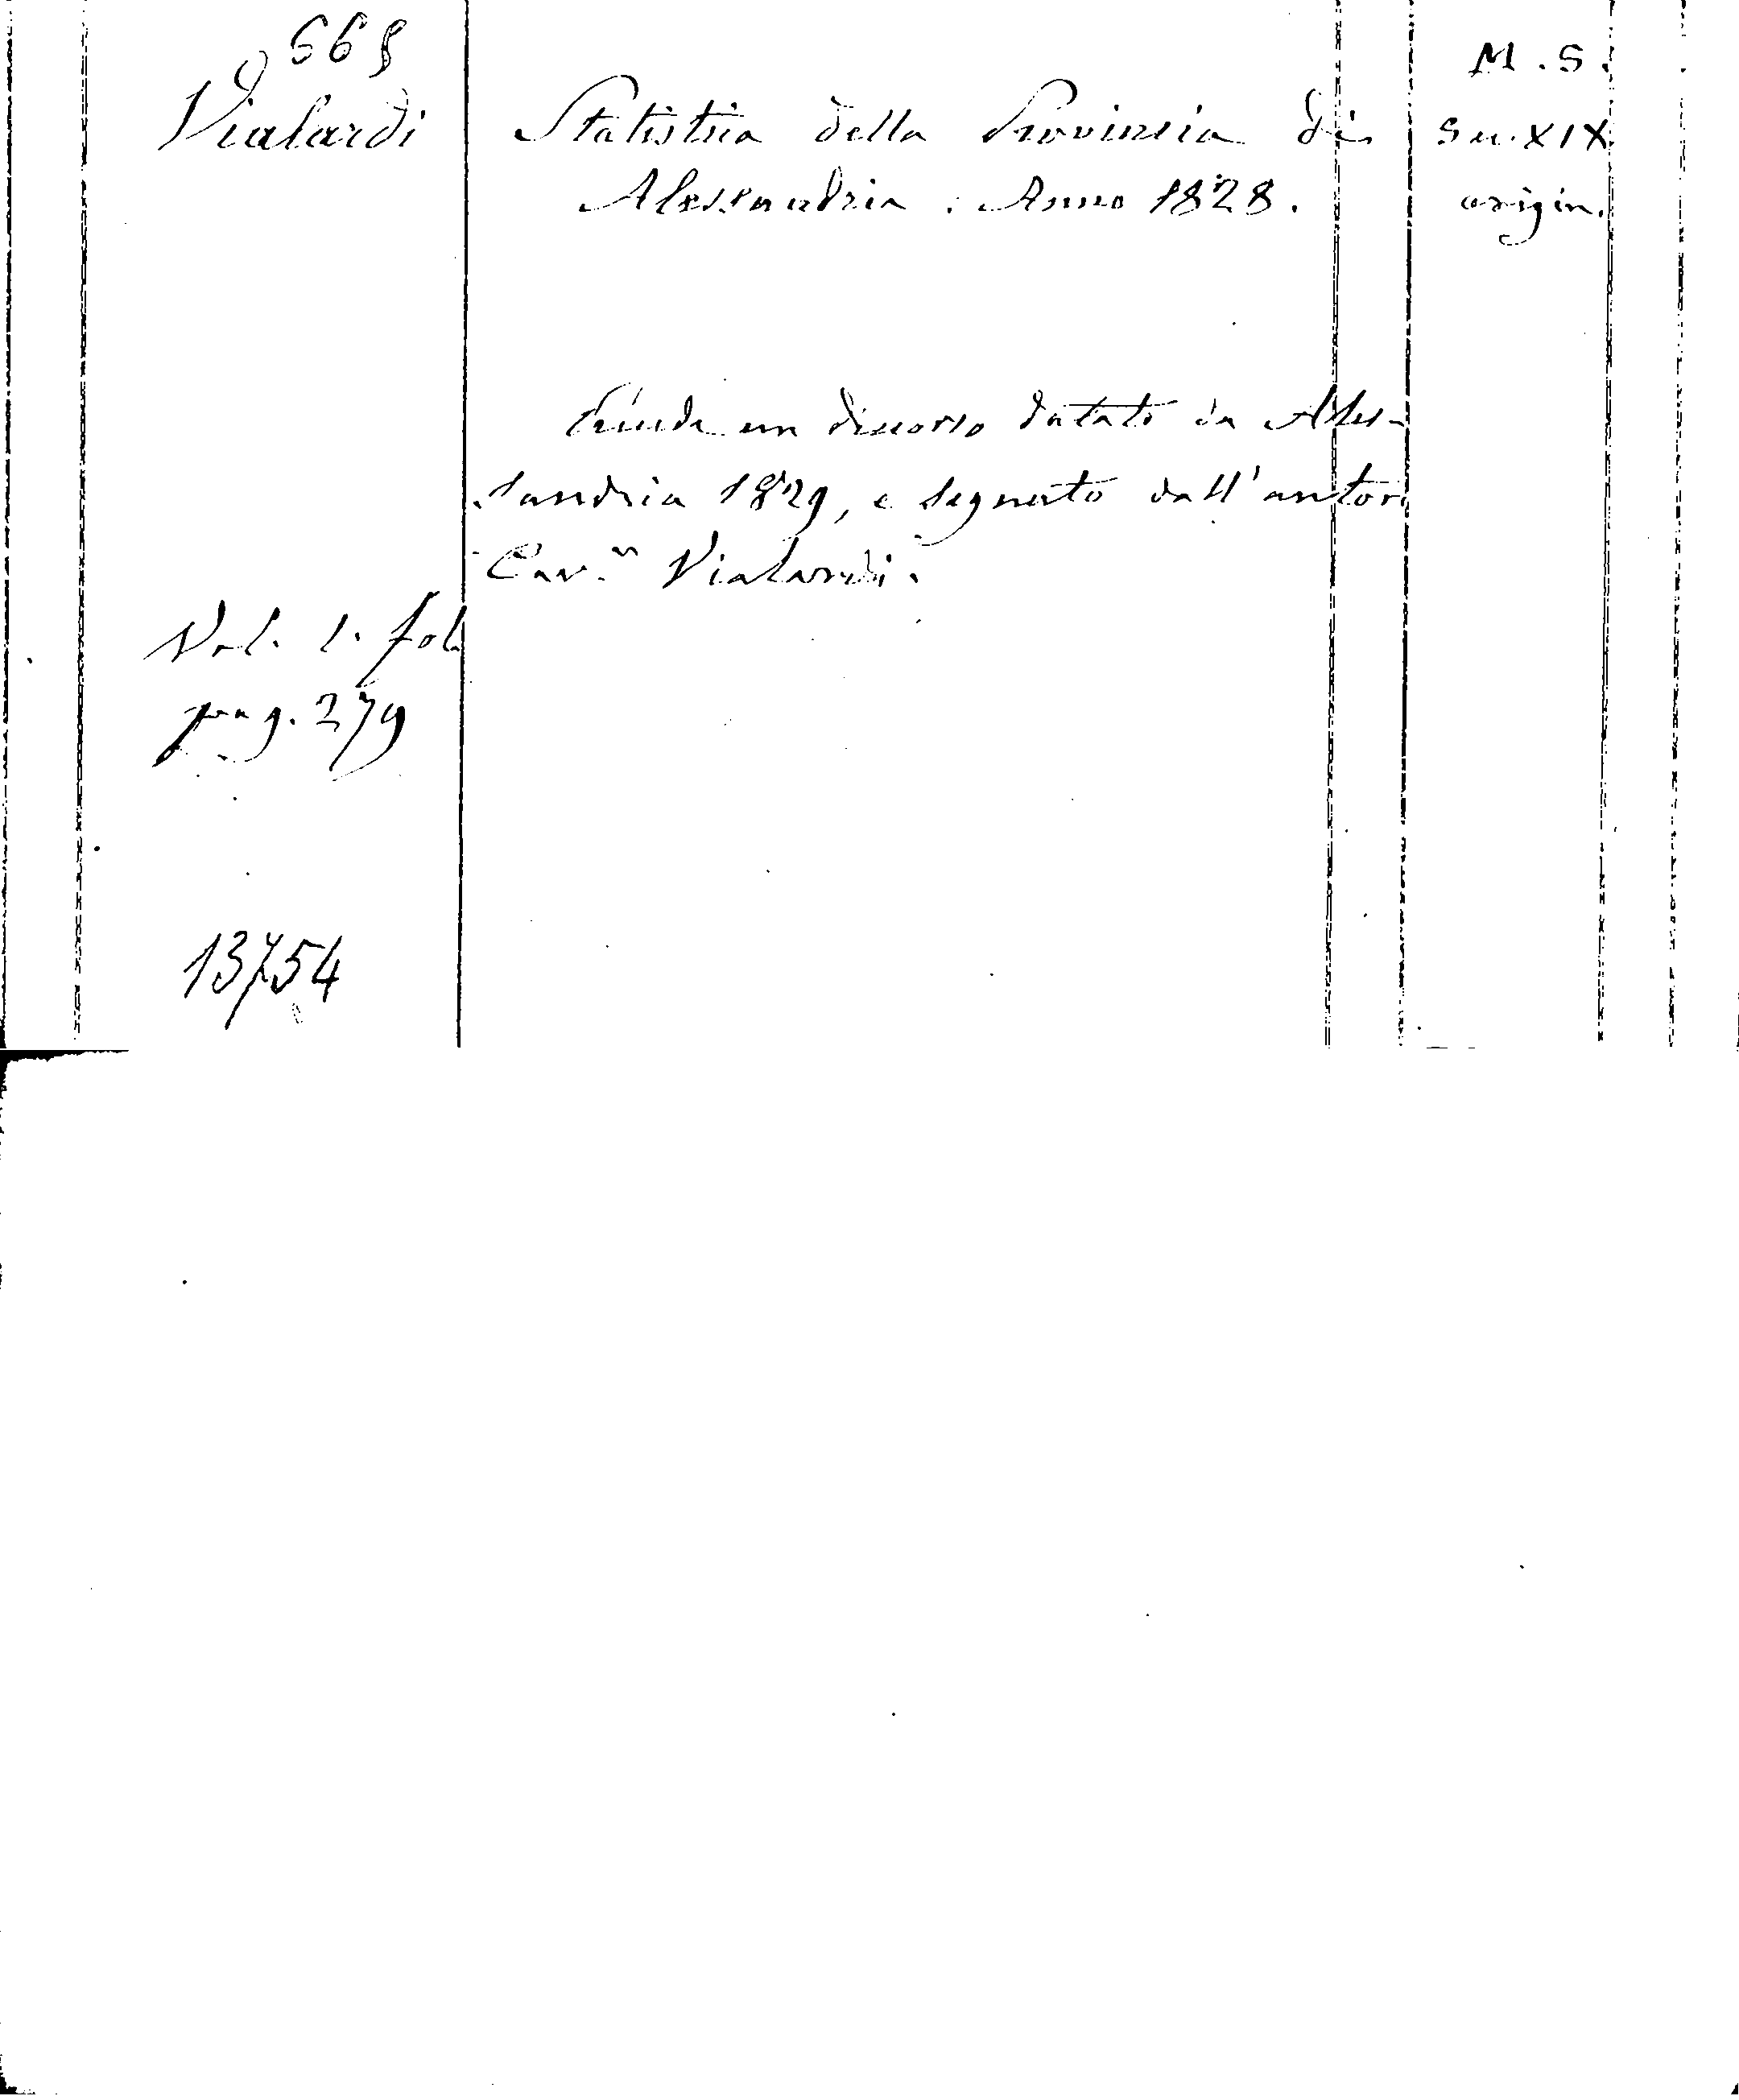 668
Vialardi
Statistica della Provincia di
Alessandria. Anno 1828.
M.S.
Sec. XIX
origin.
Precede un discorso datato da Ales-
sandria 1829, e segnato dall'autore
Cav.re Vialardi.
Vol. 1. fol.
pag. 279
13754